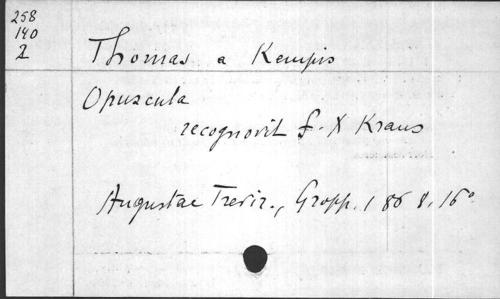 258
140
2
Thomas a Kempis
Opuscula
recognovit F. X Kraus
Augustae Trevir., Gropp. 1868. 16°